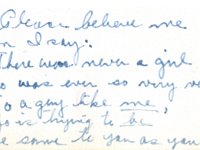 Please believe me
n I say:
There was never a girl
o was ever so very
o a guy like me,
o is trying to be
e same to you as you